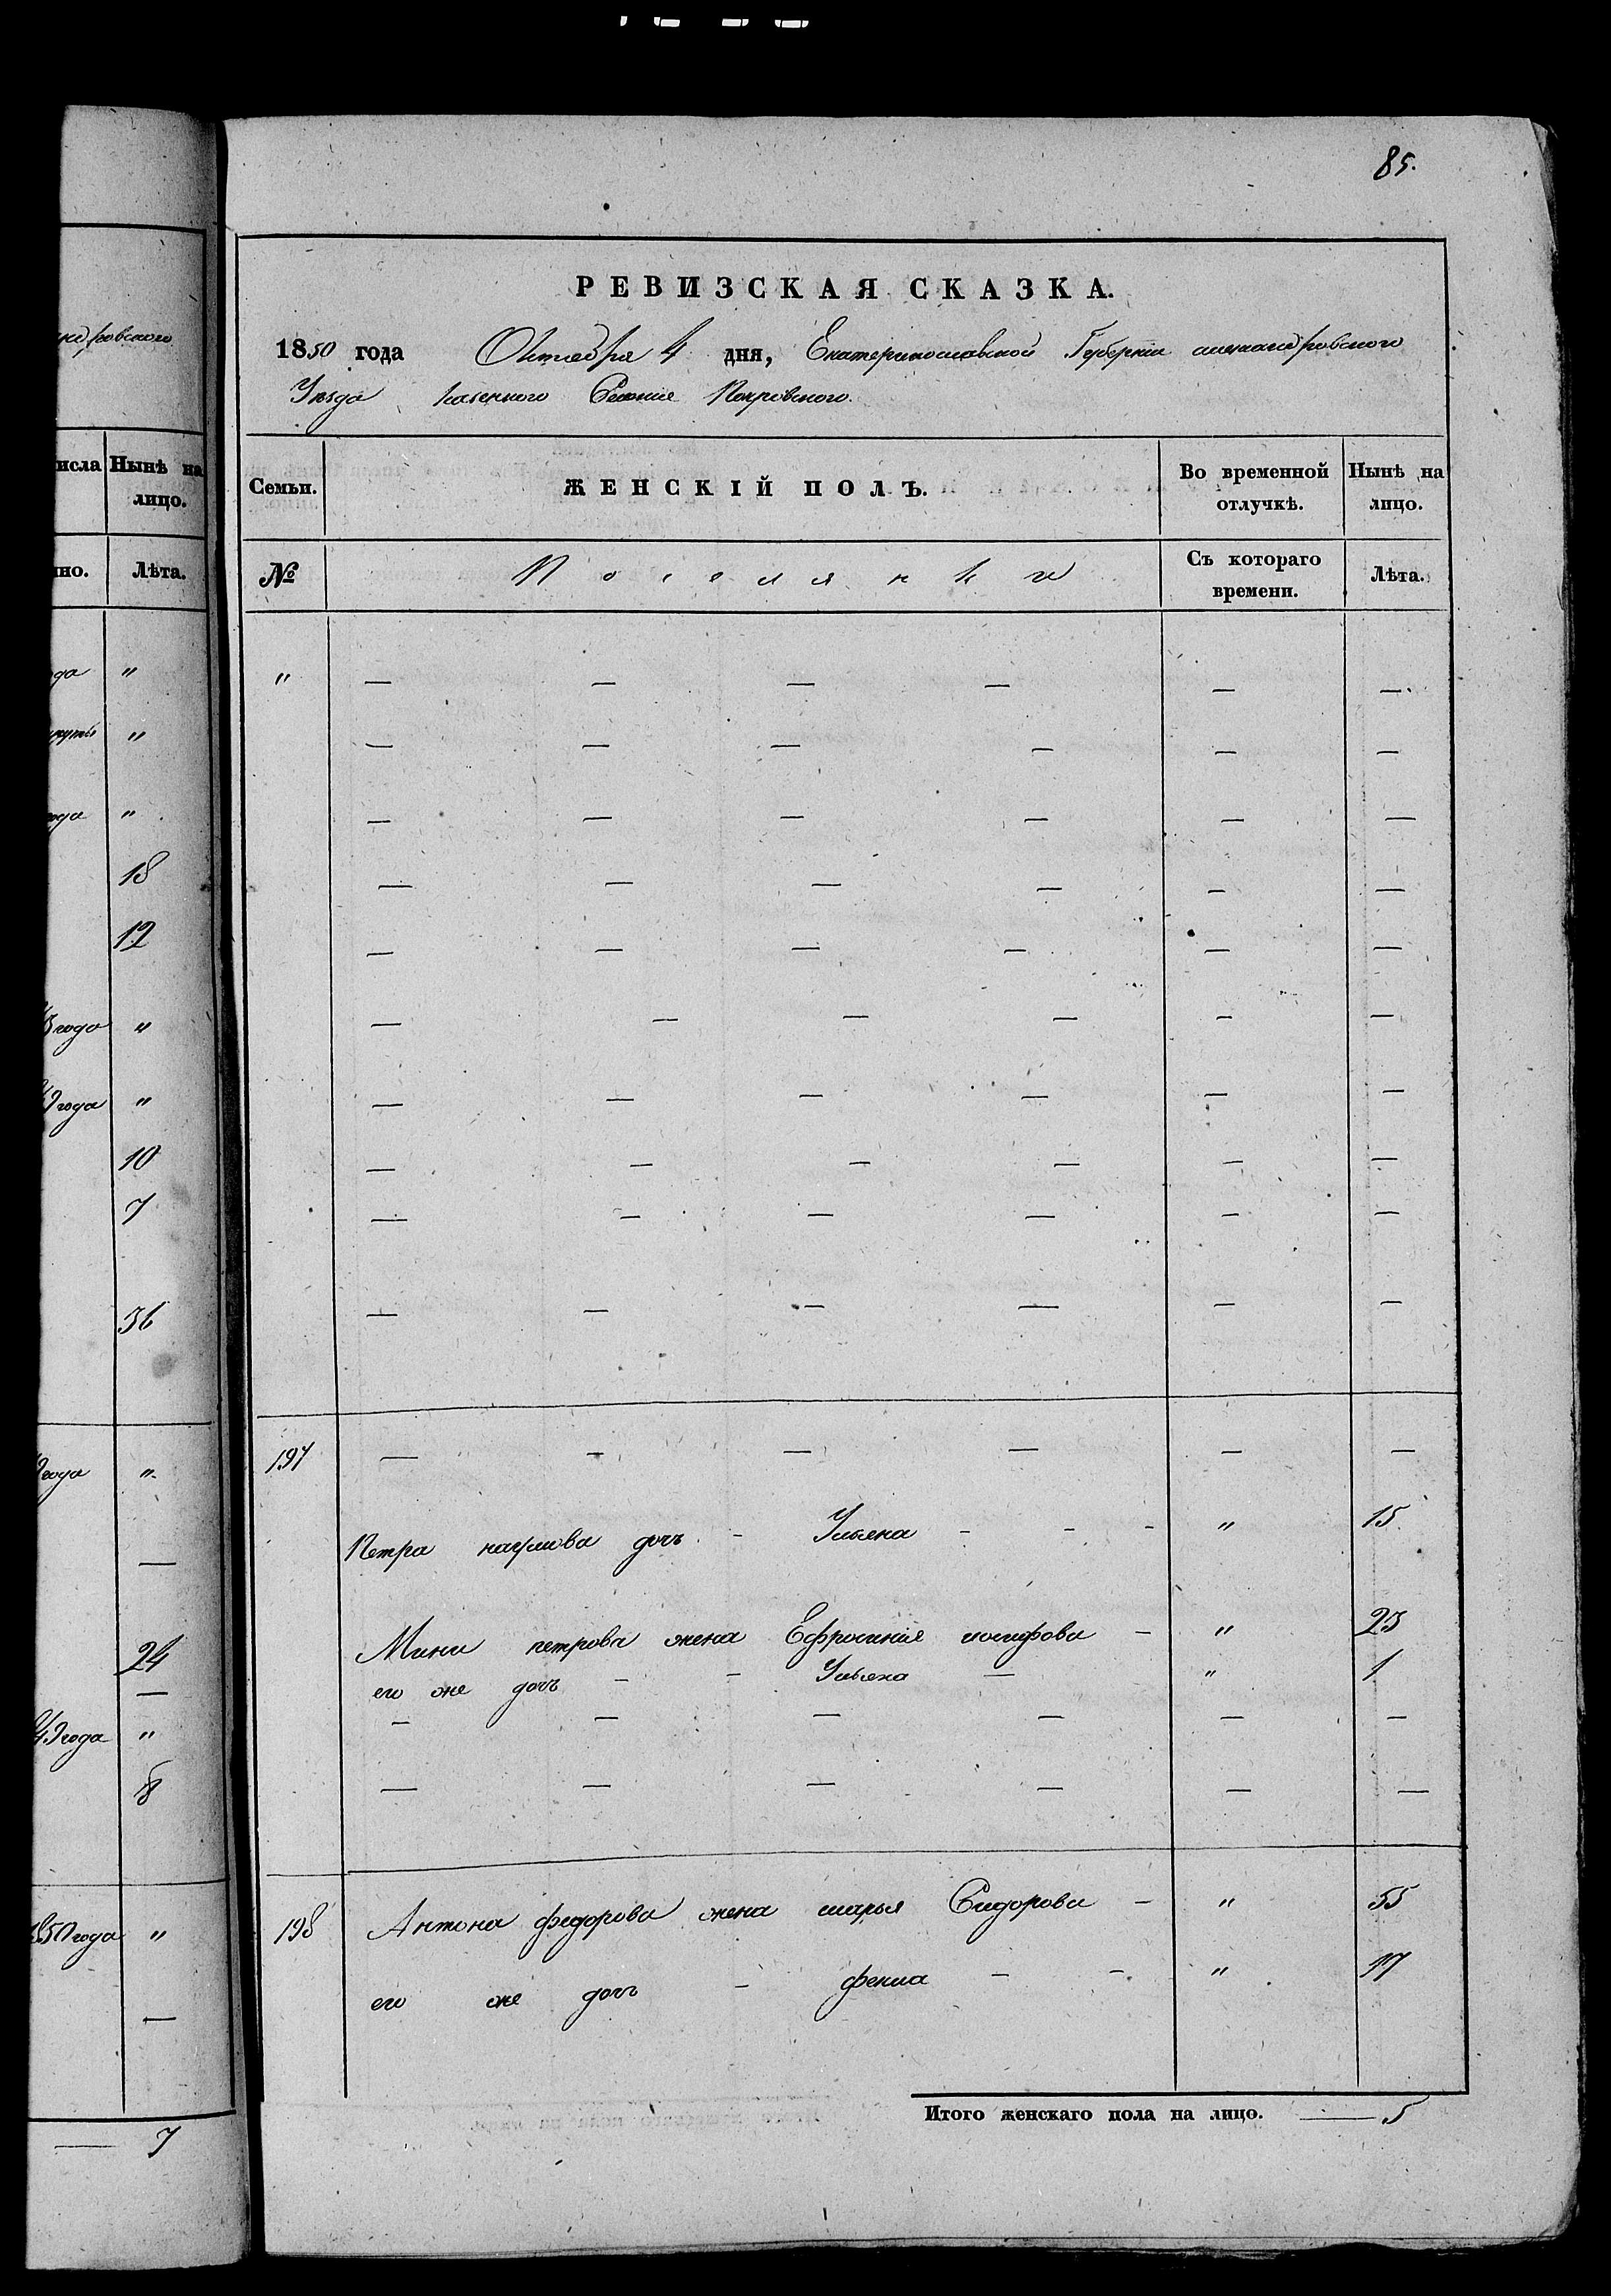 85.
РЕВИЗСКАЯ СКАЗКА.
1850 года Октября 4 дня, Екатеринославской Губернии александровского
Уезда казенного Селения Покровского.
ндровского
исла Нынѣ на лицо.
но. Лѣта.
Семьи. ЖЕНСКІЙ ПОЛЪ. Во временной отлучкѣ. Нынѣ на лицо.
№ Поселянки Съ котораго времени. Лѣта.
ода "
"
года "
18
12
3 года "
9 года "
10
7
36
года "
—
24
—
49 года "
8
1850 года "
—
— 7
" — — — — — —
— — — — — —
— — — — — —
— — — — — —
— — — — — —
— — — — — —
— — — — — —
— — — — — —
— — — — — —
— — — — — —
197 — — — — — —
Петра дочь - Ульяна - - - " 15
петрова жена Ефросиния иосифова - " 23
его же дочь - - Ульяна — " 1
— — — — — —
— — — — — —
198 Антона федорова жена марья Сидорова - " 55
его же дочь - " 17
Итого женскаго пола на лицо. — 5